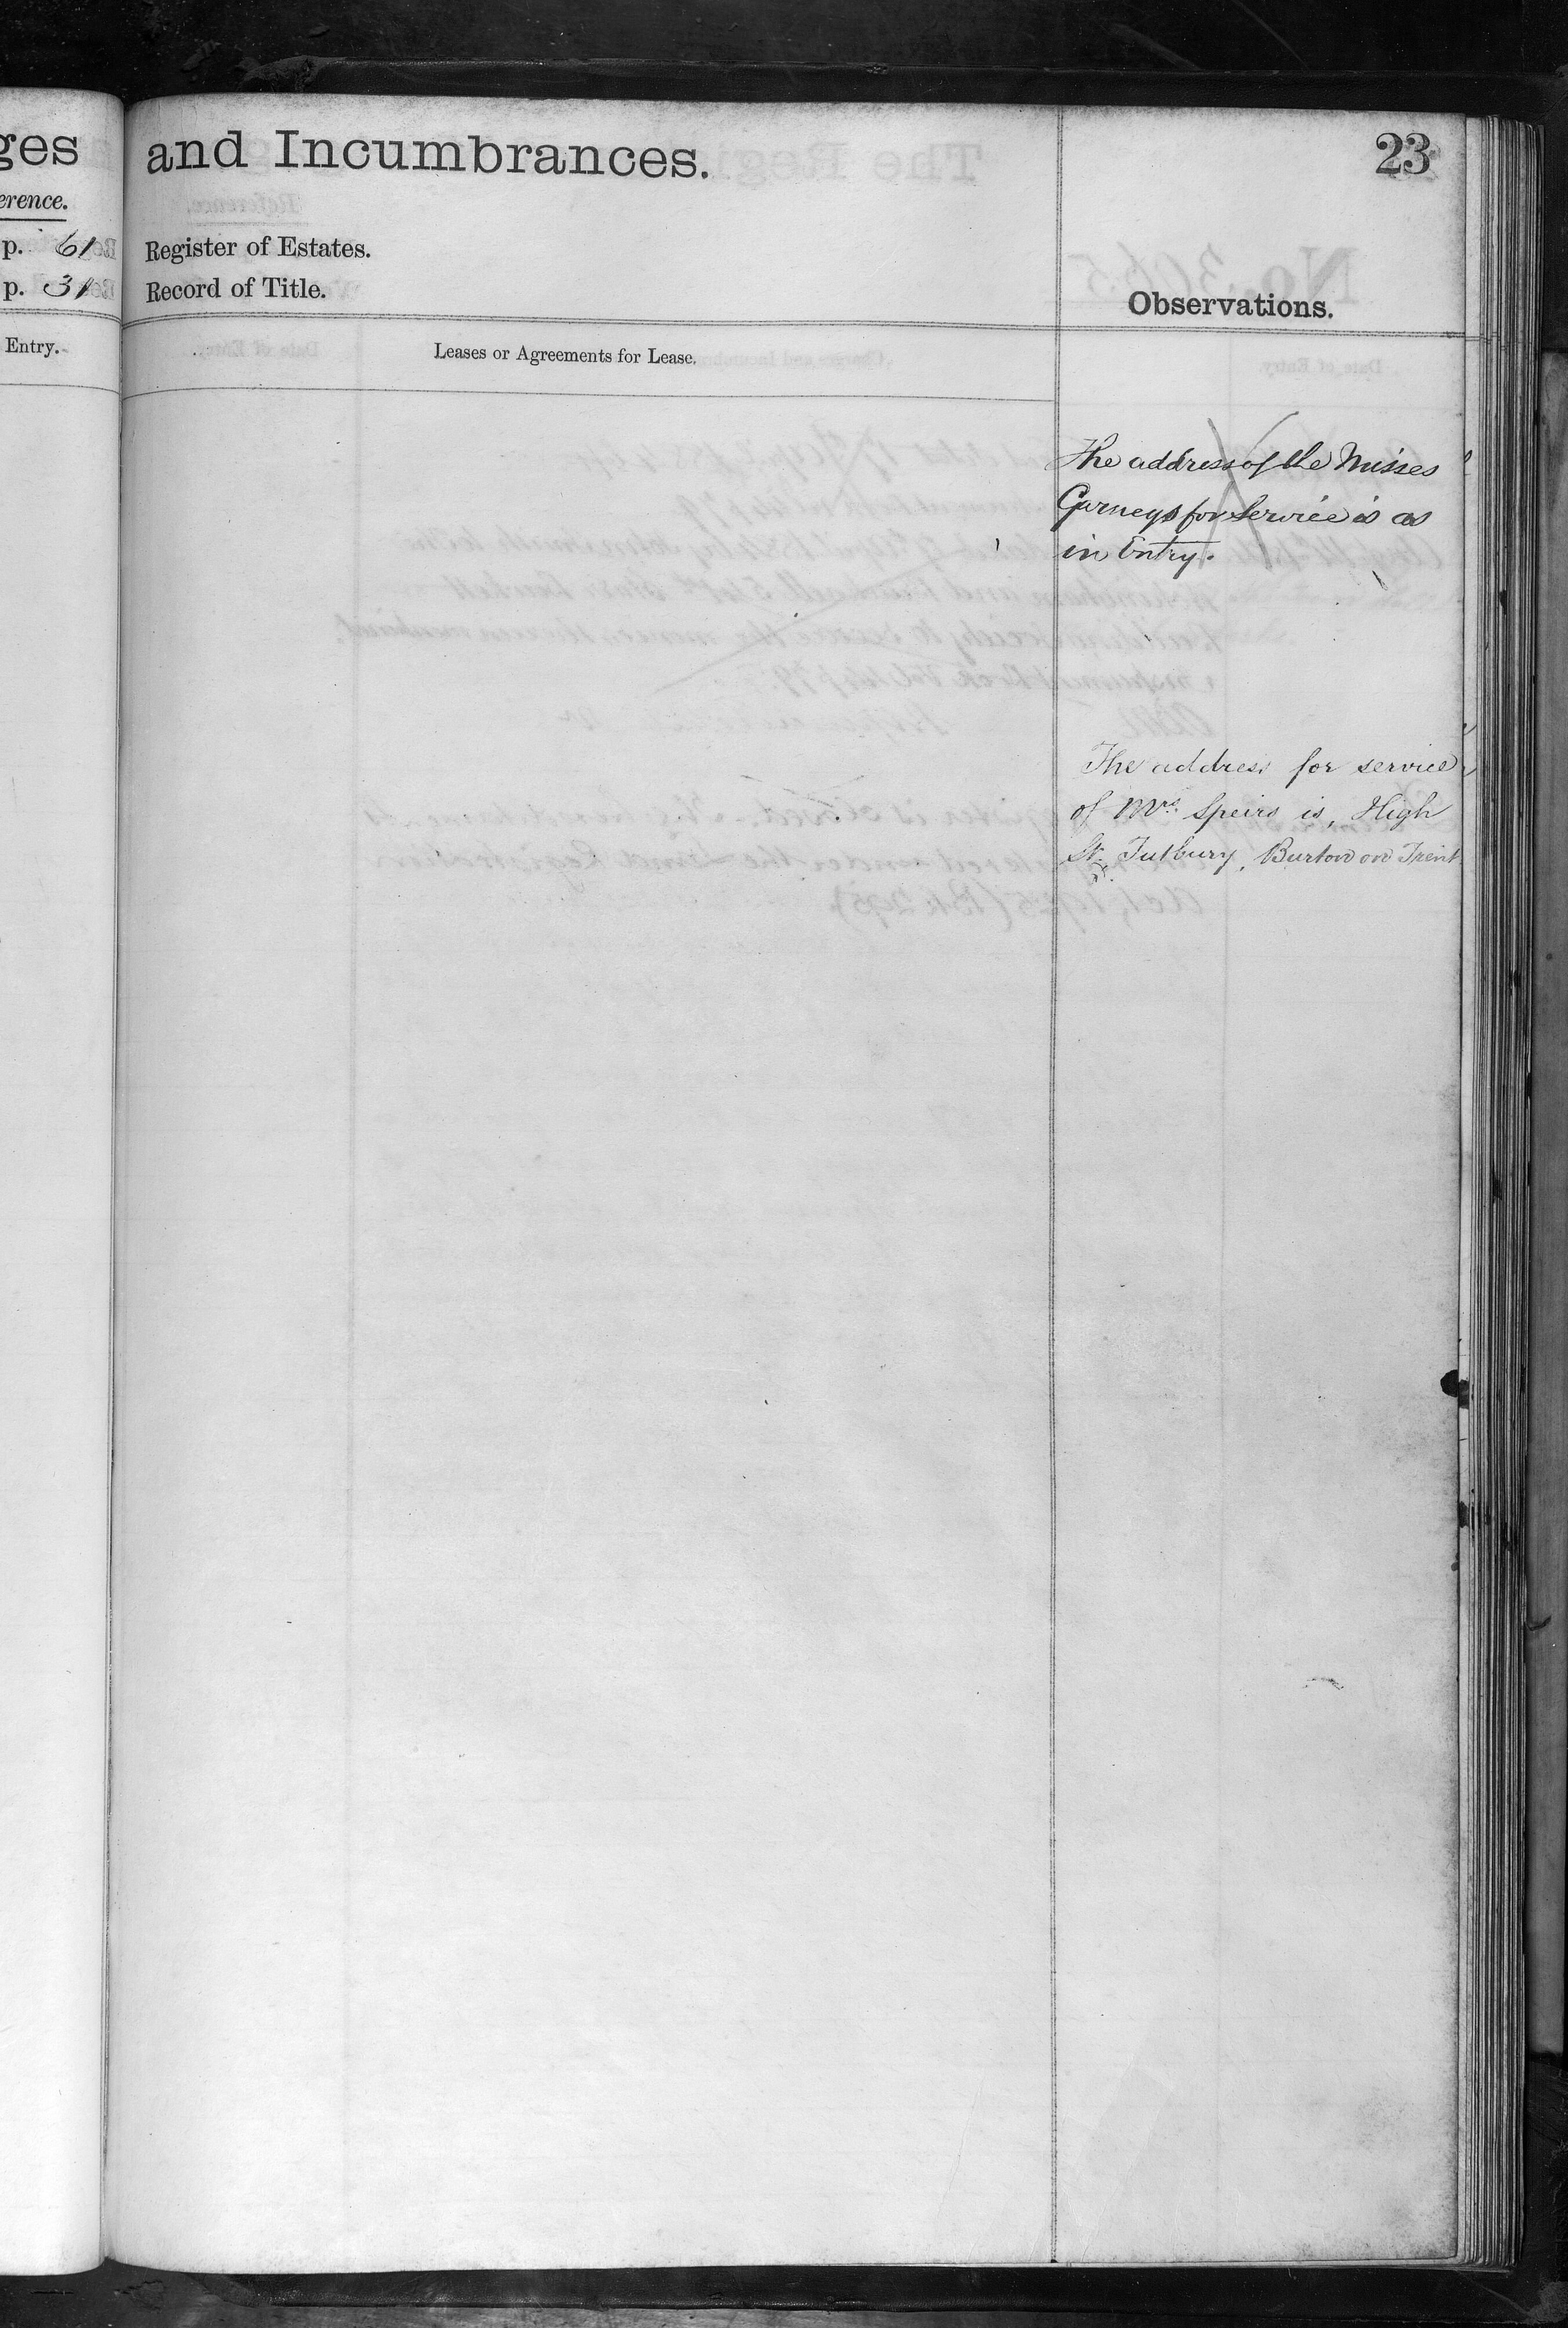 ges
erence.
p. 61
p. 31
Entry.
and Incumbrances.
Register of Estates.
Record of Title.
Leases or Agreements for Lease.
23
Observations.
The address of the Misses
Gurneys for Service is as
in Entry.
The address for service
of Mrs. Speirs is, High
St. Tutbury, Burton on Trent